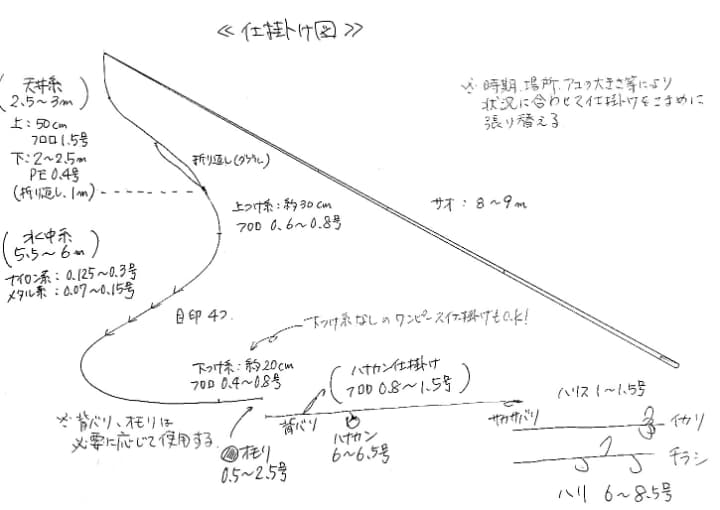 ≪仕掛け図≫
天井糸
2.5〜3m
上：50cm
フロロ1.5号
下：2〜2.5m
PE 0.4号
(折り返し 1m)
折り返し(ダブル)
※時期、場所、アユの大きさ等により
状況に合わせて仕掛けをこまめに
張り替える
サオ：8〜9m
上つけ糸：約30cm
フロロ 0.6〜0.8号
水中糸
5.5〜6m
ナイロン系：0.125〜0.3号
メタル系：0.07〜0.15号
目印 4つ
下つけ糸なしのワンピース仕掛けもO.K!
下つけ糸：約20cm
フロロ 0.4〜0.8号
ハナカン仕掛け
フロロ 0.8〜1.5号
※背バリ、オモリは
必要に応じて使用する
オモリ
0.5〜2.5号
背バリ
ハナカン
6〜6.5号
サカサバリ
ハリス1〜1.5号
イカリ
チラシ
ハリ 6〜8.5号